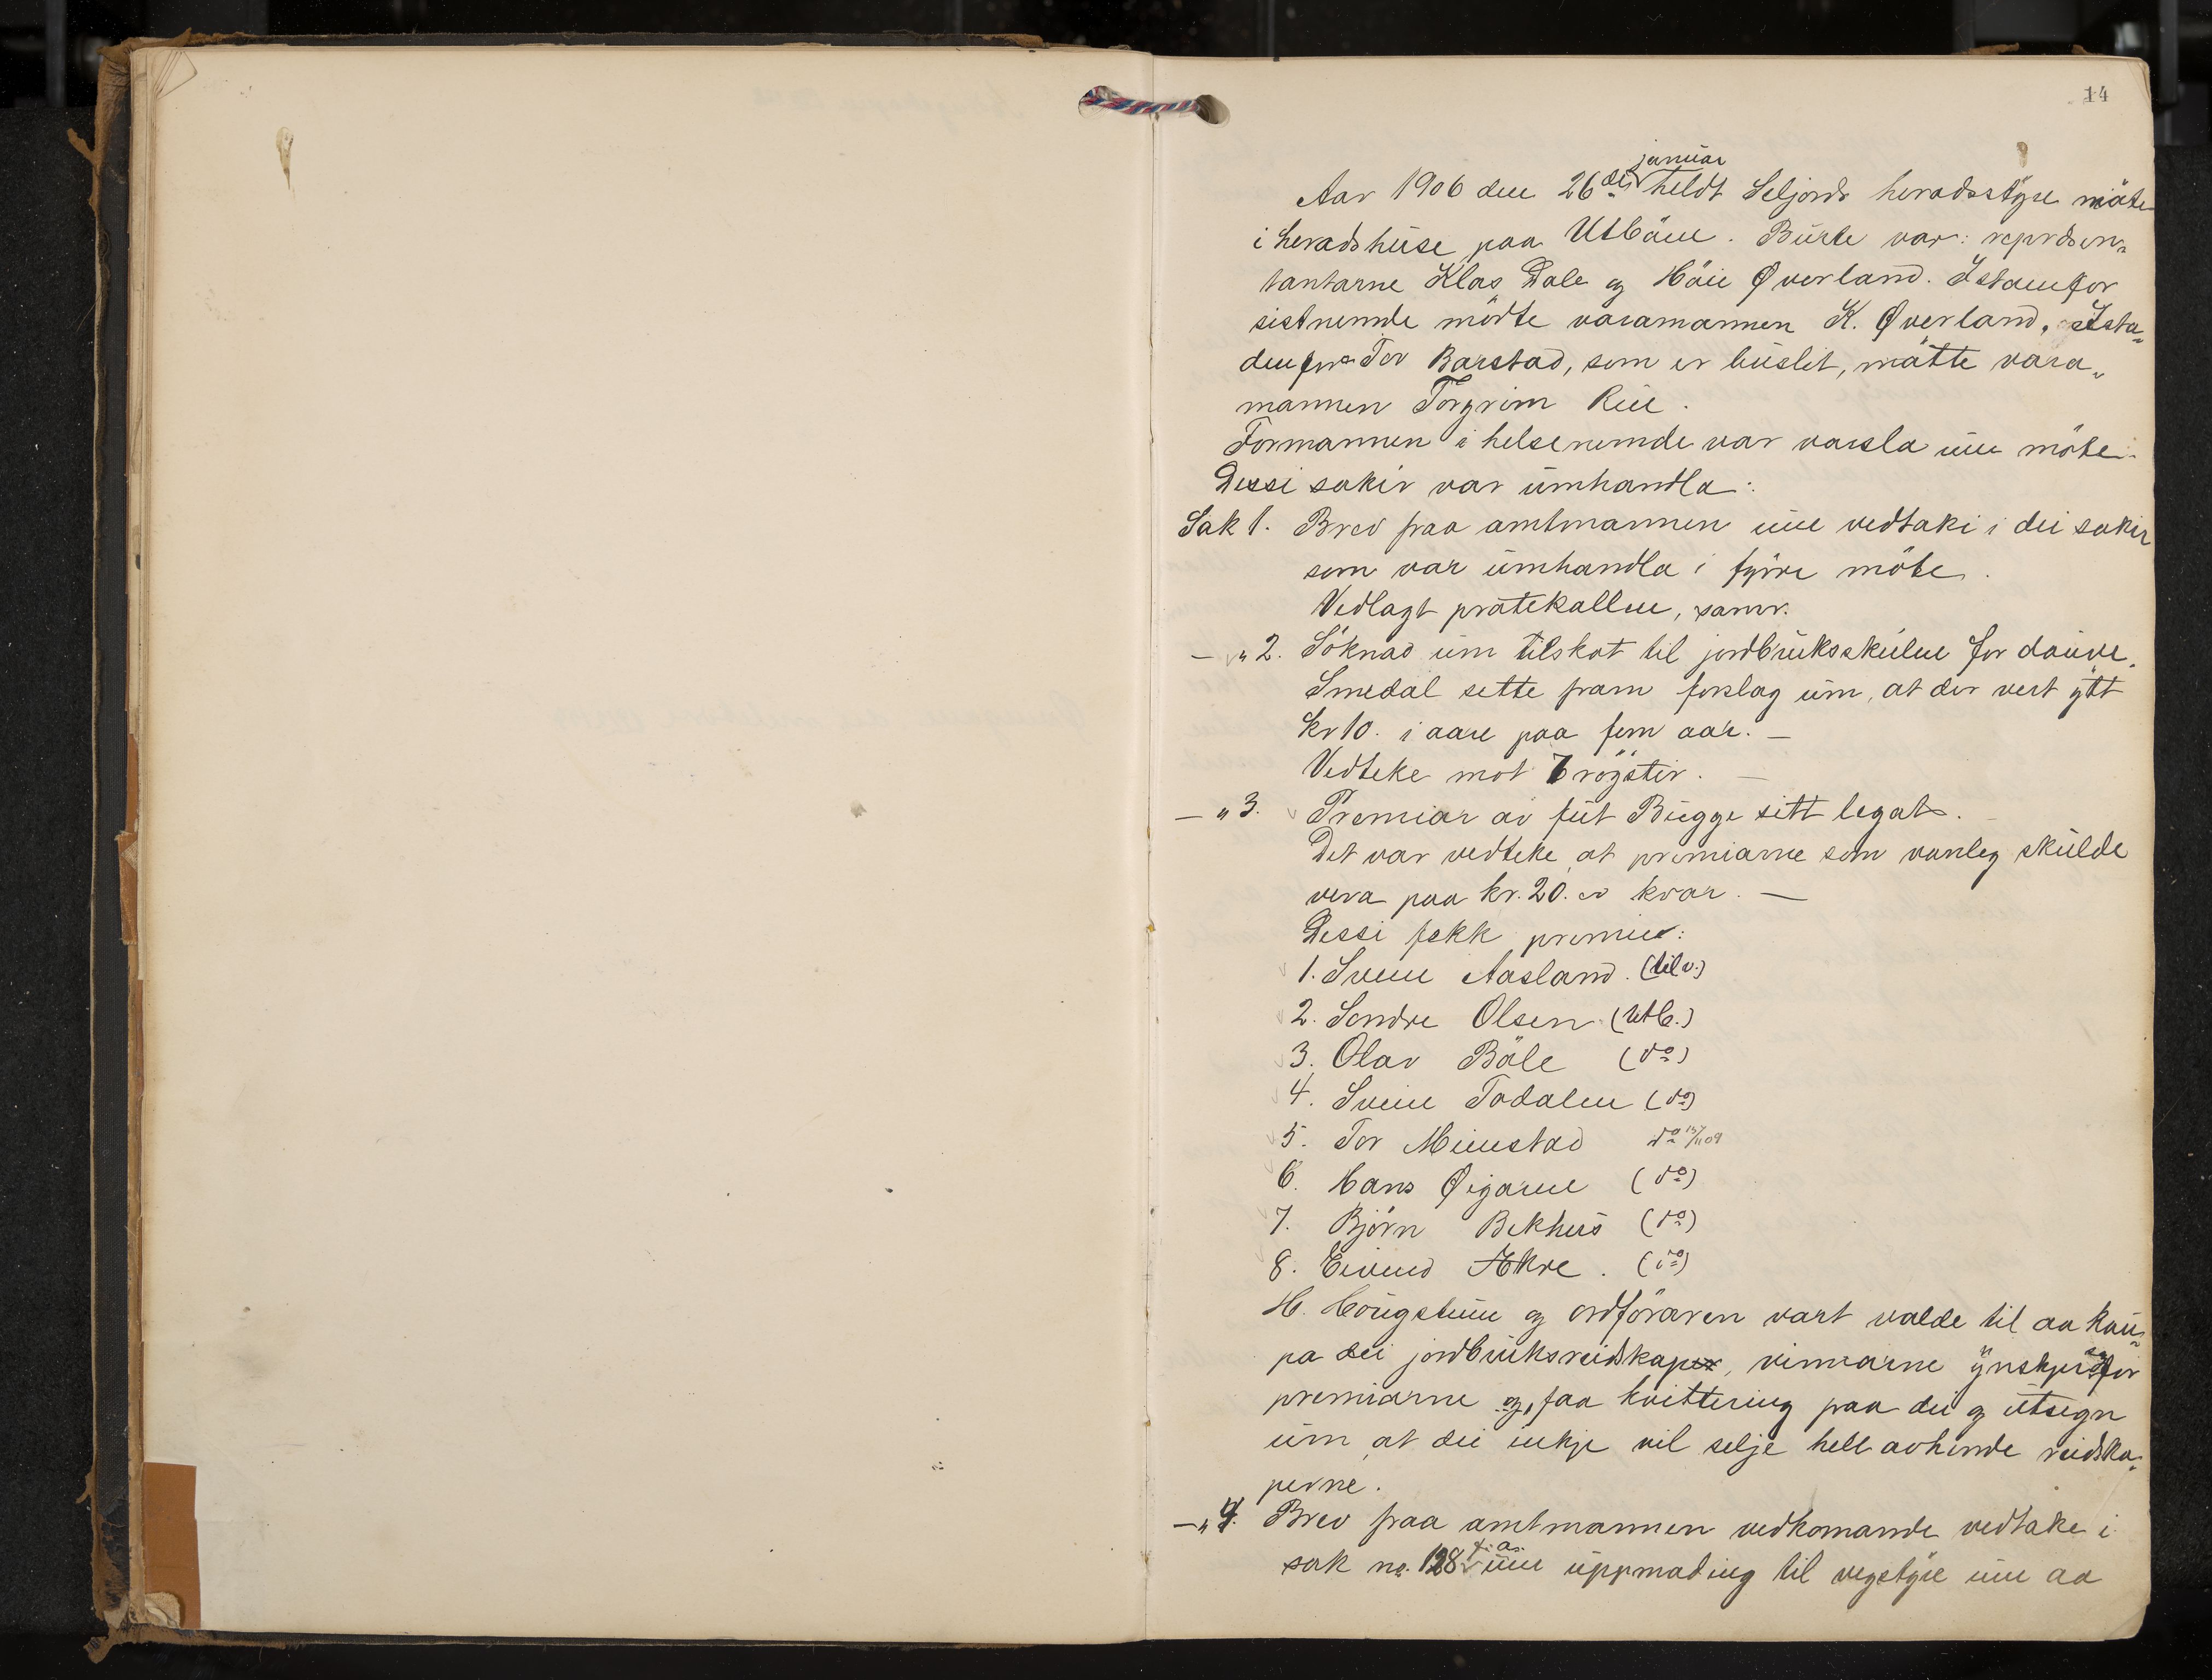 14
januar
Aar 1906 den 26de heldt Seljords heradsstyre möte
i heradshuse paa Utböen. Burte var: represen„
tantarne Klas Dale og Höie Øverland. Istaden for
sistnemde mötte varamannen K. Øverland. Ista„
den for Tov Barstad, som er buslit, mötte vara„
mannen Torgrim Rue.
Formannen i helsenemde var varsla um möte.
Dessi sakir var umhandla:
Sak 1. Brev fraa amtmannen um vedtaki i dei sakir
som var umhandla i fyrre möte.
Vedlagt protekollen, samr.
— „ 2. Söknad um tilskot til jordbruksskulen for dauve.
Smedal sette fram forslag um, at der vert ytt
kr 10. i aare paa fem aar. —
Vedteke mot 7 röyster. —
— „ 3. Premiar av fut Bugge sitt legat.
Det var vedteke at premiarne som vanleg skulde
vera paa kr. 20. kvar. —
Dessi fekk premie:
1. Svein Aasland. (tilv.)
2. Sondre Olsen (Utb.)
3. Olav Böle (do)
4. Svein Todalen (do)
5. Tor Mienstad do 15/11 09
6. Hans Øigarne (do)
7. Björn Bekhus (do)
8. Eivind Åkre. (do)
H. Haugstun og ordföraren vart valde til aa kau„
pa dei jordbruksreidskaper, vinnarne ynskjer seg for
premiarne og faa kvittering paa dei og utsegn
um at dei inkje vil selje hell avhende reidska„
perne.
— „ 4. Brev fraa amtmannen vedkomande vedtake i
sak no. 128 f. a. um uppmoding til vegstyre um aa